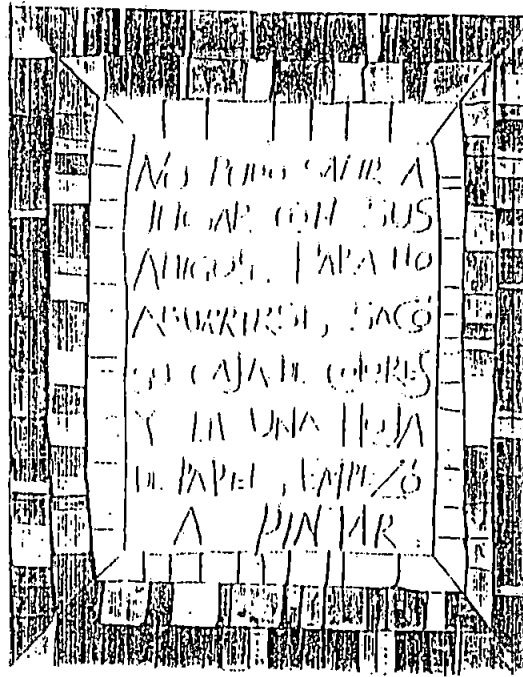 NO PUDO SALIR A
JUGAR CON SUS
AMIGOS. PARA NO
ABURRIRSE, SACÓ
SU CAJA DE COLORES
Y EN UNA HOJA
DE PAPEL, EMPEZÓ
A PINTAR.